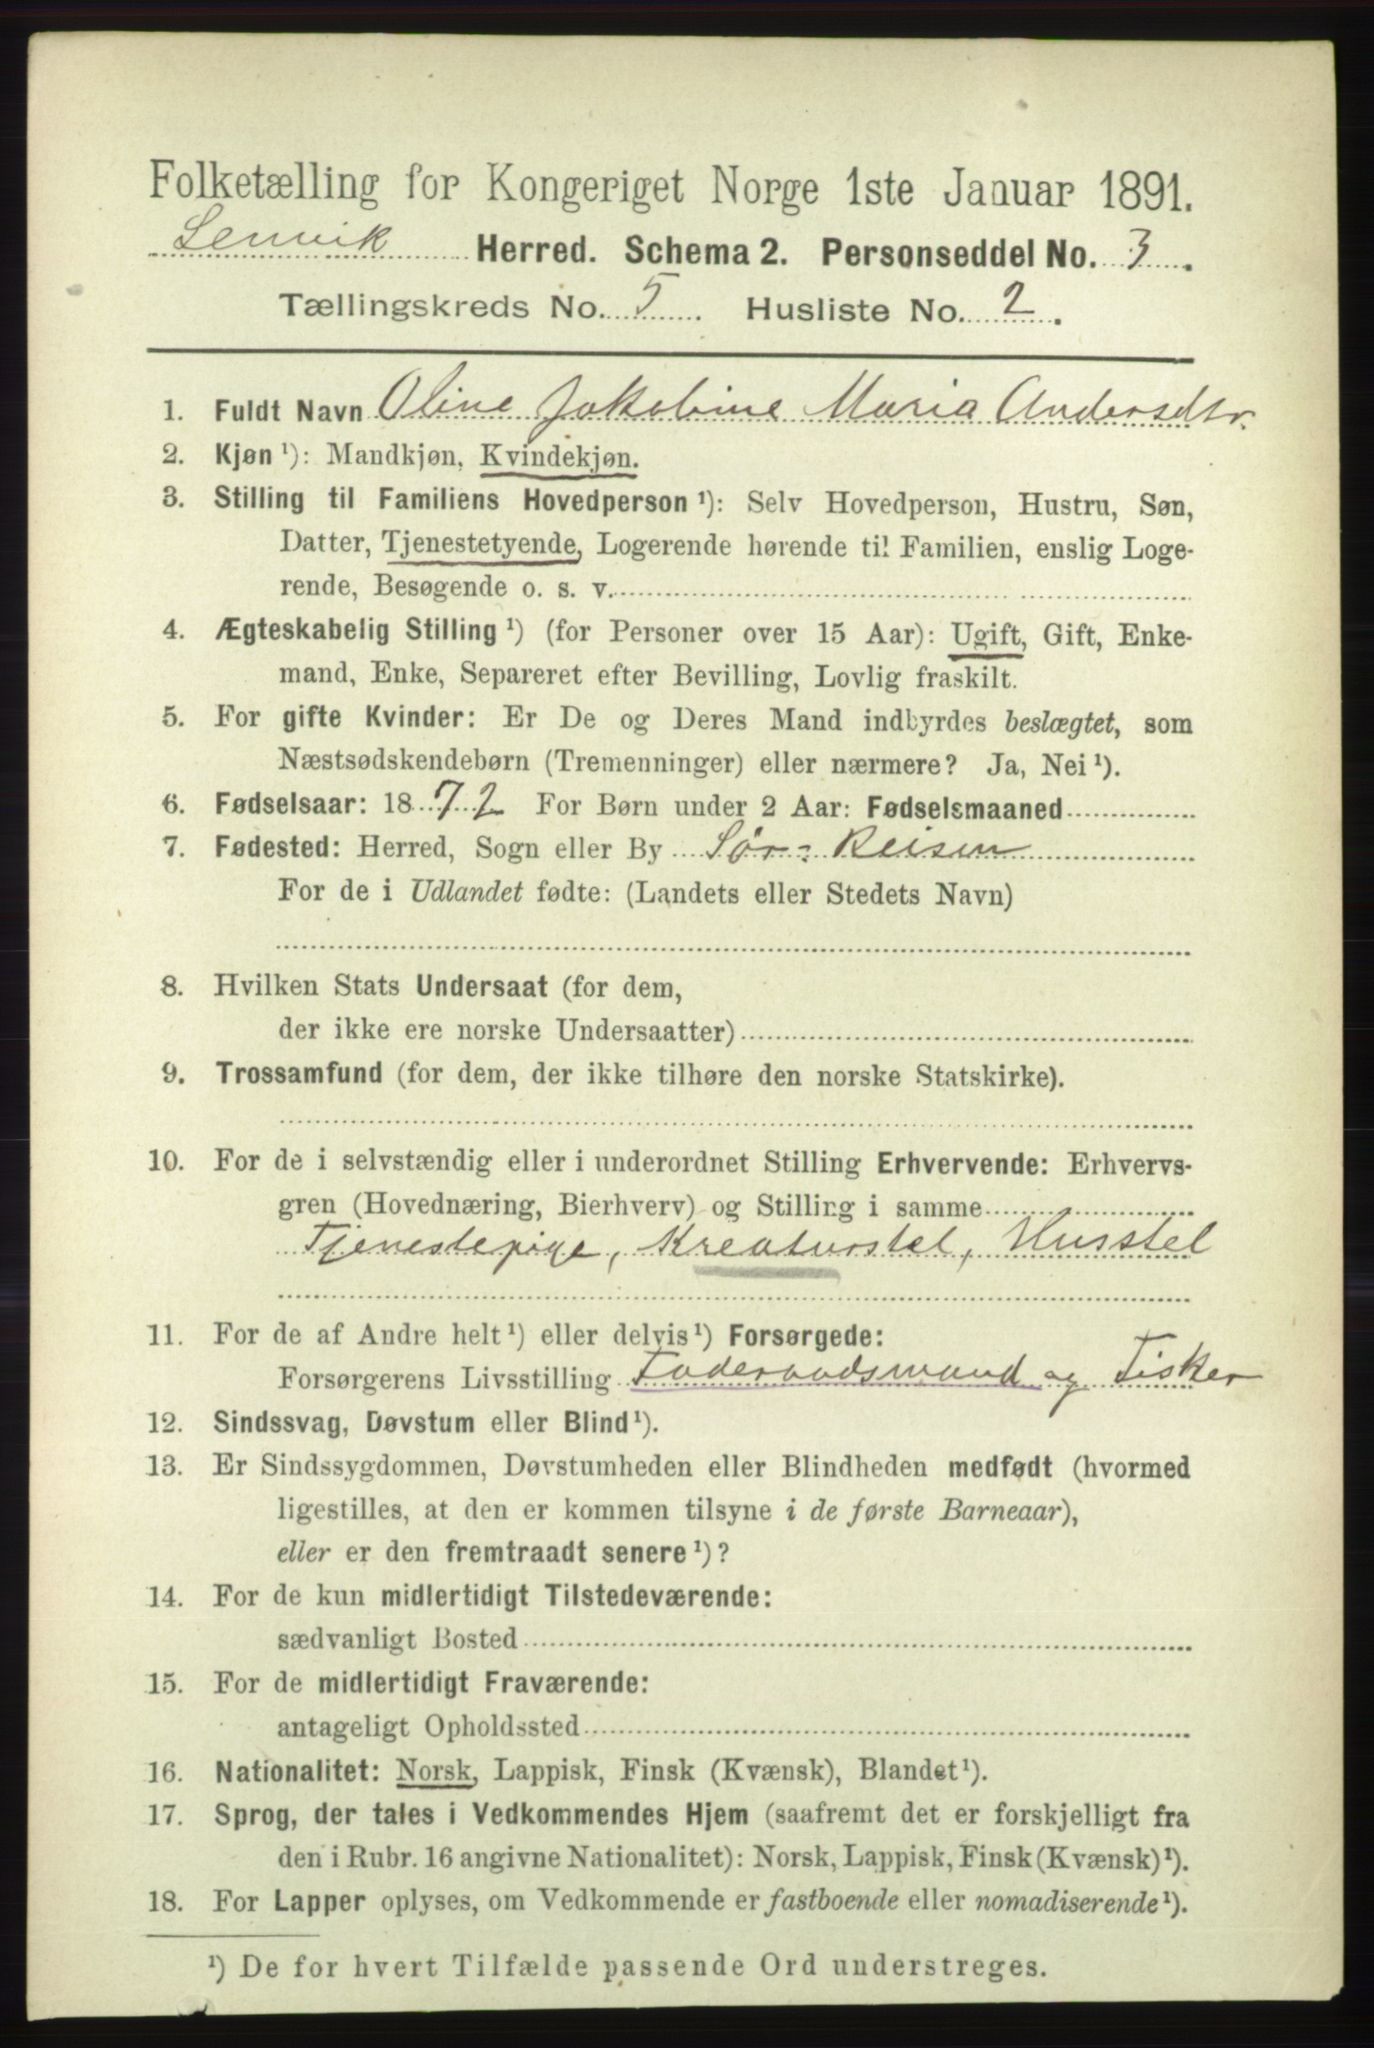 Folketælling for Kongeriget Norge 1ste Januar 1891.
Lenvik Herred. Schema 2. Personseddel No. 3.
Tællingskreds No. 5. Husliste No. 2.
1. Fuldt Navn Oline Jakobine Maria Andersdtr.
2. Kjøn ¹): Mandkjøn, Kvindekjøn.
3. Stilling til Familiens Hovedperson ¹): Selv Hovedperson, Hustru, Søn,
Datter, Tjenestetyende, Logerende hørende til Familien, enslig Loge-
rende, Besøgende o. s. v.
4. Ægteskabelig Stilling ¹) (for Personer over 15 Aar): Ugift, Gift, Enke-
mand, Enke, Separeret efter Bevilling, Lovlig fraskilt.
5. For gifte Kvinder: Er De og Deres Mand indbyrdes beslægtet, som
Næstsødskendebørn (Tremenninger) eller nærmere? Ja, Nei ¹).
6. Fødselsaar: 1872 For Børn under 2 Aar: Fødselsmaaned
7. Fødested: Herred, Sogn eller By Sør-Reisen
For de i Udlandet fødte: (Landets eller Stedets Navn)
8. Hvilken Stats Undersaat (for dem,
der ikke ere norske Undersaatter)
9. Trossamfund (for dem, der ikke tilhøre den norske Statskirke).
10. For de i selvstændig eller i underordnet Stilling Erhvervende: Erhvervs-
gren (Hovednæring, Bierhverv) og Stilling i samme
Tjenestepige, Kreaturstel, Husstel
11. For de af Andre helt ¹) eller delvis ¹) Forsørgede:
Forsørgerens Livsstilling Foderaadsmand og Fisker
12. Sindssvag, Døvstum eller Blind ¹).
13. Er Sindssygdommen, Døvstumheden eller Blindheden medfødt (hvormed
ligestilles, at den er kommen tilsyne i de første Barneaar),
eller er den fremtraadt senere ¹)?
14. For de kun midlertidigt Tilstedeværende:
sædvanligt Bosted
15. For de midlertidigt Fraværende:
antageligt Opholdssted
16. Nationalitet: Norsk, Lappisk, Finsk (Kvænsk), Blandet ¹).
17. Sprog, der tales i Vedkommendes Hjem (saafremt det er forskjelligt fra
den i Rubr. 16 angivne Nationalitet): Norsk, Lappisk, Finsk (Kvænsk) ¹).
18. For Lapper oplyses, om Vedkommende er fastboende eller nomadiserende ¹).
¹) De for hvert Tilfælde passende Ord understreges.